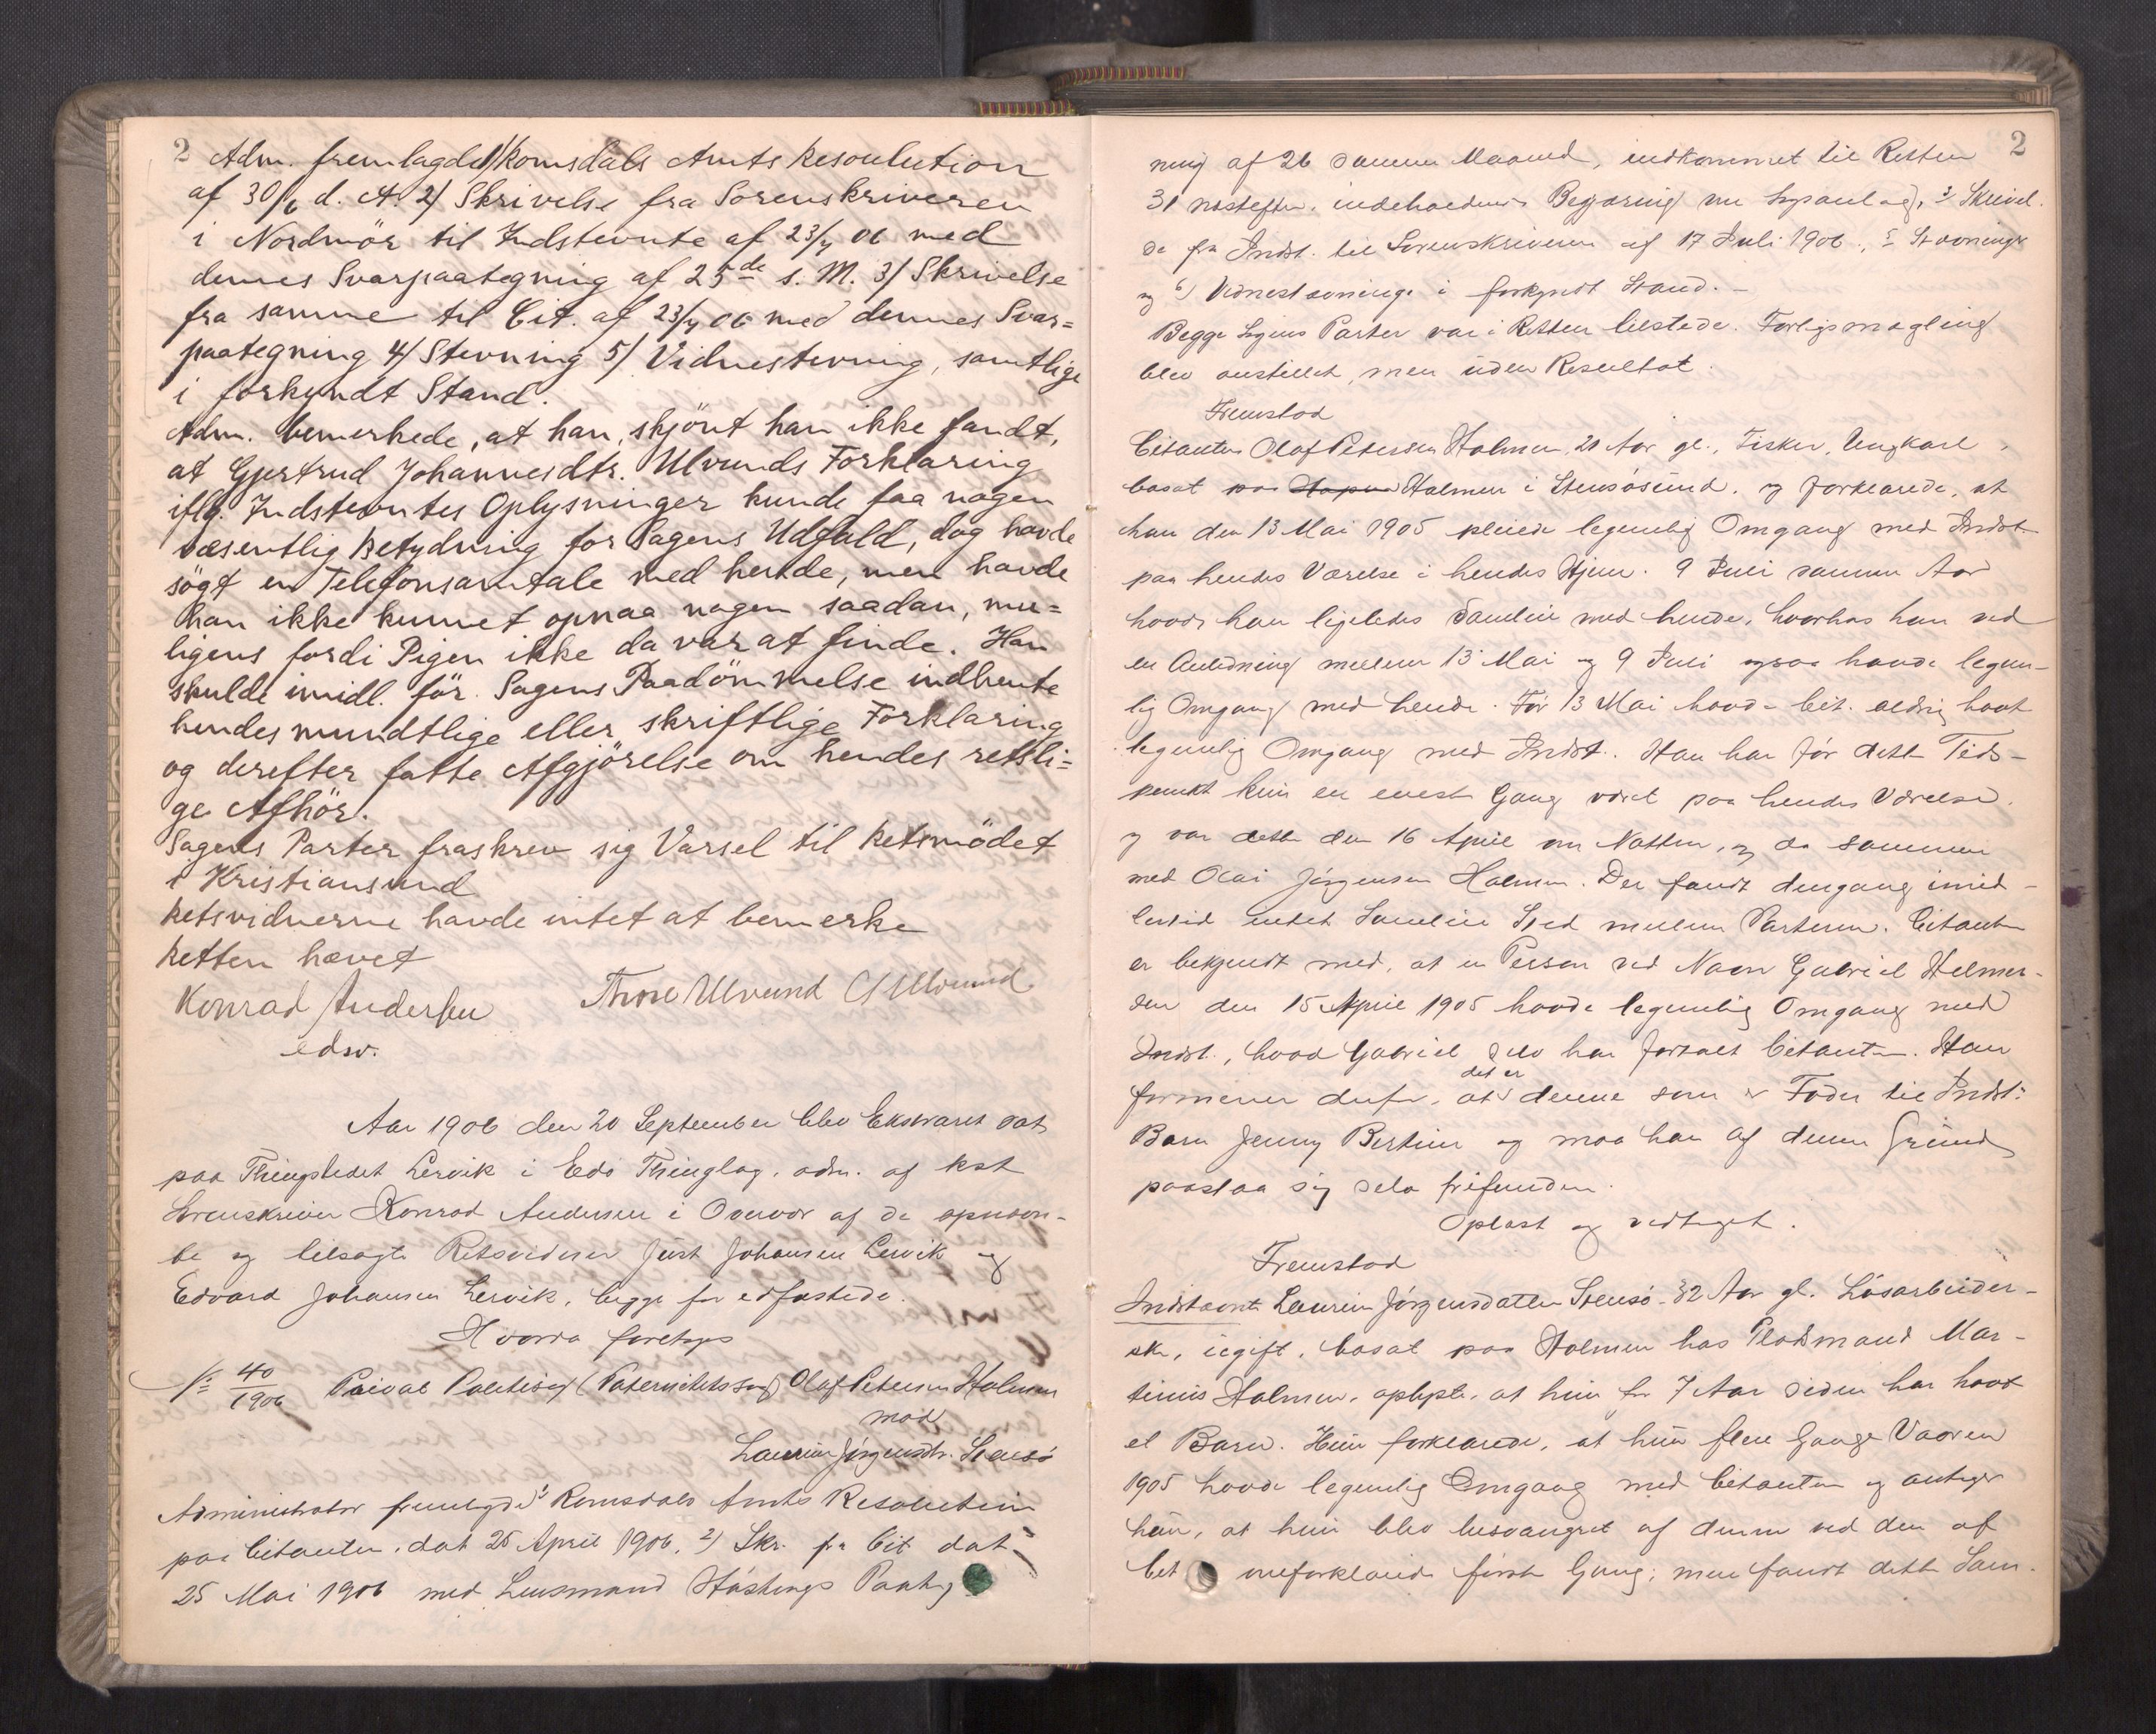 2 Adm. fremlagde 1/ Romsdals Amts Resoulution
af 30/6 d. A. 2/ Skrivelse fra Sorenskriveren
i Nordmör til Indstevnte af 23/7 06 med
dennes Svarpaategning af 25de s. M. 3/ Skrivelse
fra samme til Cit. af 23/7 06 med dennes Svar=
paategning 4/ Stevning 5/ Vidnestevning, samtlige
i forkyndt Stand.
Adm. bemerkede, at han, skjönt han ikke fandt,
at Gjertrud Johannesdtr. Ulvunds Forklaring
iflg. Indstevntes Oplysninger kunde faa nogen
væsentlig Betydning for Sagens Udfald, dog havde
sögt en Telefonsamtale med hende, men havde
han ikke kunnet opnaa nogen saadan, mu=
ligens fordi Pigen ikke da var at finde. Han
skulde imidl. för Sagens Paadömmelse indhente
hendes mundtlige eller skriftlige Forklaring
og derefter fatte Afgjörelse om hendes retsli=
ge Afhör.
Sagens Parter fraskrev sig Varsel til Retsmödet
i Kristiansund
Retsvidnerne havde intet at bemerke
Retten hævet
Konrad Andersen Thore Ulvund Ulvund
edsv.
Aar 1906 den 20 September blev Ekstraret sat
paa Thingstedet Lervik i Edö Thinglag, adm. af kst
Sorenskriver Konrad Andersen i Overvær af de opnævn-
te og tilsagte Retsvidner Just Johansen Lervik og
Edvard Johansen Lervik, begge for edfæstede.
Hvorda foretoges
No 40/1906 Privat Politisag (Paternitetssag) Olaf Petersen Holmen
mod
Laurine Jörgensdtr. Stensö
Administrator fremlagde 1) Romsdals Amts Resolution
paa Citanten, dat 26 April 1906, 2) Skr. fra Cit. dat.
25 Mai 1906 med Lensmand Hästings Paateg
2
ning af 26 samme Maaned, indkommet til Retten
31 næstefter, indeholdende Begjæring om Sagsanlæg, 3) Skrivel-
se fra Indst. til Sorenskriveren af 17 Juli 1906, 5) Stevning
og 6) Vidnestevning i forkyndt Stand. –
Begge Sagens Parter var i Retten tilstede. Forligsmægling
blev anstillet, men uden Resultat.
Fremstod
Citanten Olaf Petersen Holmen, 21 Aar gl., Fisker, Ungkarl,
bosat paa Holmen i Stensösund, og forklarede, at
han den 13 Mai 1905 pleiede legemlig Omgang med Indst.
paa hendes Værelse i hendes Hjem. 9 Juli samme Aar
havde han ligeledes Samleie med hende, hvorhos han ved
en Anledning mellem 13 Mai og 9 Juli ogsaa havde legem-
lig Omgang med hende. Før 13 Mai havde Cit. aldrig havt
legemlig Omgang med Indst. Han har før dette Tids-
punkt kun en eneste Gang været paa hendes Værelse,
og var dette den 16 April om Natten, og da sammen
med Olai Jörgensen Holmen. Der fandt dengang imid-
lertid intet Samleie Sted mellem Parterne. Citanten
er bekjendt med, at en Person ved Navn Gabriel Helmer-
sen den 15 April 1905 havde legemlig Omgang med
Indst., hvad Gabriel selv har fortalt Citanten. Han
formener derfor, at det er denne som er Fader til Indst.'
Barn Jenny Bertine og maa han af denne Grund
paastaa sig selv frifunden.
Oplæst og vedtaget.
Fremstod
Indstævnte Laurine Jörgensdatter Stensö 32 Aar gl. Lösarbeider-
ske, ugift, bosat paa Holmen hos Pladsmand Mar-
tinus Holmen, oplyste, at hun for 7 Aar siden har havt
et Barn. Hun forklarede, at hun flere Gange Vaaren
1905 havde legemlig Omgang med Citanten og antager
hun, at hun blev besvangret af denne ved den af
Cit omforklarede første Gang; men fandt dette Sam-